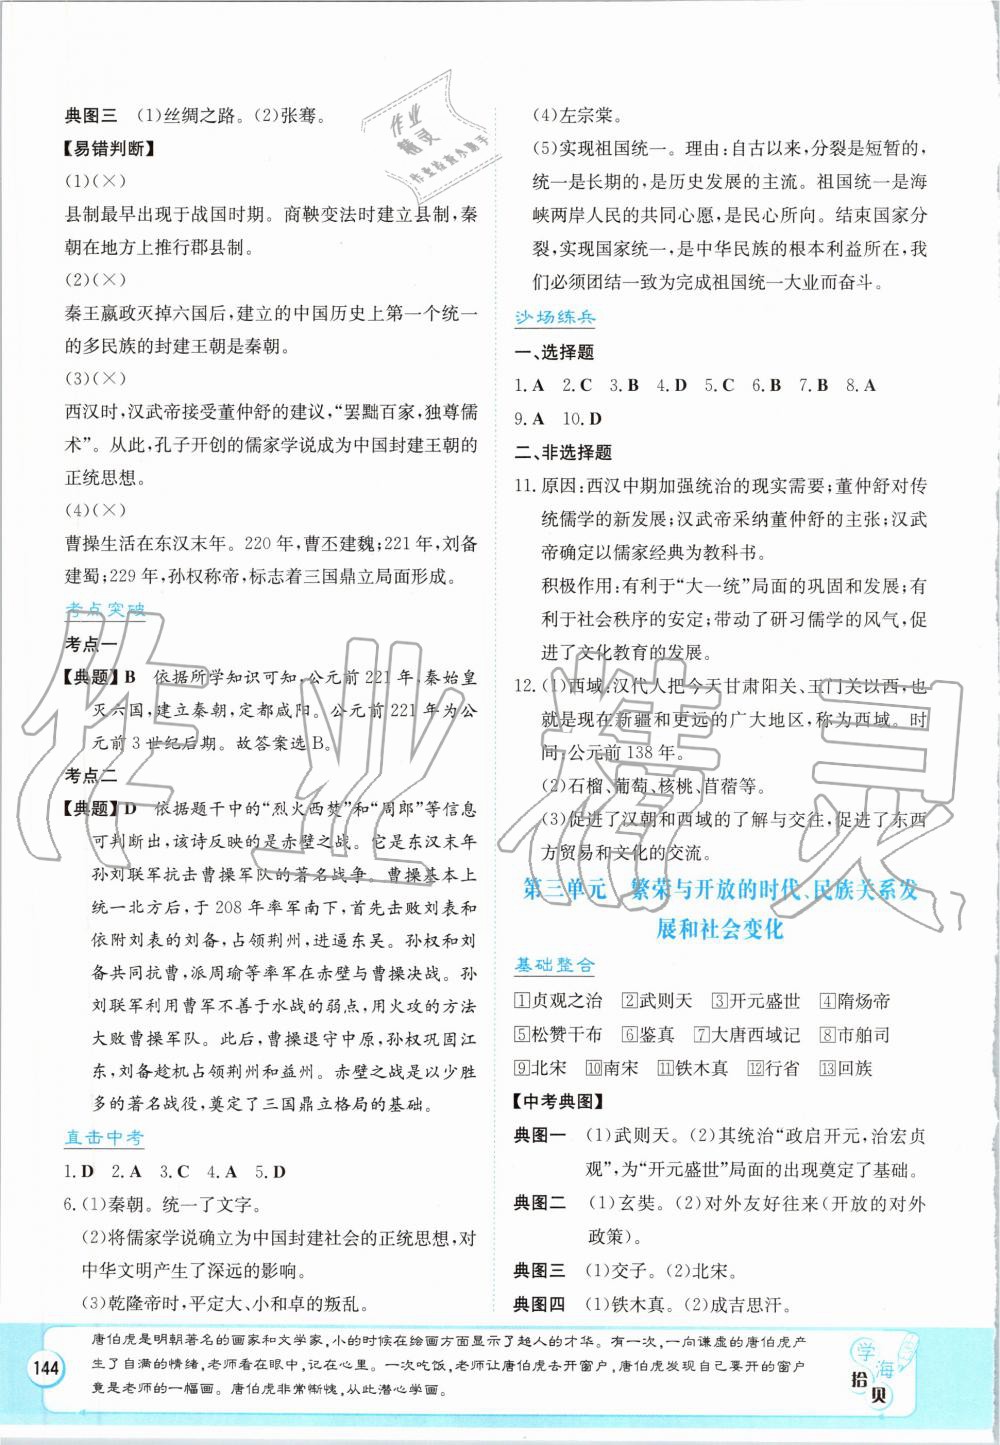 典图三　(1)丝绸之路。(2)张骞。
【易错判断】
(1)(×)
县制最早出现于战国时期。商鞅变法时建立县制,秦
朝在地方上推行郡县制。
(2)(×)
秦王嬴政灭掉六国后,建立的中国历史上第一个统一
的多民族的封建王朝是秦朝。
(3)(×)
西汉时,汉武帝接受董仲舒的建议,“罢黜百家,独尊儒
术”。从此,孔子开创的儒家学说成为中国封建王朝的
正统思想。
(4)(×)
曹操生活在东汉末年。220年,曹丕建魏;221年,刘备
建蜀;229年,孙权称帝,标志着三国鼎立局面形成。
考点突破
考点一
【典题】B　依据所学知识可知,公元前221年,秦始皇
灭六国,建立秦朝,定都咸阳。公元前221年为公
元前3世纪后期。故答案选B。
考点二
【典题】D　依据题干中的“烈火西焚”和“周郎”等信息
可判断出,该诗反映的是赤壁之战。它是东汉末年
孙刘联军抗击曹操军队的著名战役。曹操基本上
统一北方后,于208年率军南下,首先击败刘表和
依附刘表的刘备,占领荆州,进逼东吴。孙权和刘
备共同抗曹,派周瑜等率军在赤壁与曹操决战。孙
刘联军利用曹军不善于水战的弱点,用火攻的方法
大败曹操军队。此后,曹操退守中原,孙权巩固江
东,刘备趁机占领荆州和益州。赤壁之战是以少胜
多的著名战役,奠定了三国鼎立格局的基础。
直击中考
1.D　2.A　3.C　4.A　5.D
6.(1)秦朝。统一了文字。
(2)将儒家学说确立为中国封建社会的正统思想,对
中华文明产生了深远的影响。
(3)乾隆帝时,平定大、小和卓的叛乱。
(4)左宗棠。
(5)实现祖国统一。理由:自古以来,分裂是短暂的,
统一是长期的,是历史发展的主流。祖国统一是海
峡两岸人民的共同心愿,是民心所向。结束国家分
裂,实现国家统一,是中华民族的根本利益所在,我
们必须团结一致为完成祖国统一大业而奋斗。
沙场练兵
一、选择题
1.A　2.C　3.B　4.D　5.C　6.B　7.B　8.A
9.A　10.D
二、非选择题
11.原因:西汉中期加强统治的现实需要;董仲舒对传
统儒学的新发展;汉武帝采纳董仲舒的主张;汉武
帝确定以儒家经典为教科书。
积极作用:有利于“大一统”局面的巩固和发展;
有利于社会秩序的安定;带动了研习儒学的风气,促
进了文化教育的发展。
12.(1)西域:汉代人把今天甘肃阳关、玉门关以西,也
就是现在新疆和更远的广大地区,称为西域。时
间:公元前138年。
(2)石榴、葡萄、核桃、苜蓿等。
(3)促进了汉朝和西域的了解与交往,促进了东西
方贸易和文化的交流。
第三单元　繁荣与开放的时代、民族关系发
展和社会变化
基础整合
1贞观之治　2武则天　3开元盛世　4隋炀帝
5松赞干布　6鉴真　7大唐西域记　8市舶司
9北宋　10南宋　11铁木真　12行省　13回族
【中考典图】
典图一　(1)武则天。(2)其统治“政启开元,治宏贞
观”,为“开元盛世”局面的出现奠定了基础。
典图二　(1)玄奘。(2)对外友好往来(开放的对外
政策)。
典图三　(1)交子。(2)北宋。
典图四　(1)铁木真。(2)成吉思汗。
144
唐伯虎是明朝著名的画家和文学家,小的时候在绘画方面显示了超人的才华。有一次,一向谦虚的唐伯虎产
生了自满的情绪,老师看在眼中,记在心里。一次吃饭,老师让唐伯虎去开窗户,唐伯虎发现自己要开的窗户
竟是老师的一幅画。唐伯虎非常惭愧,从此潜心学画。
学海拾贝
作业精灵
作业检查小助手
作业精灵